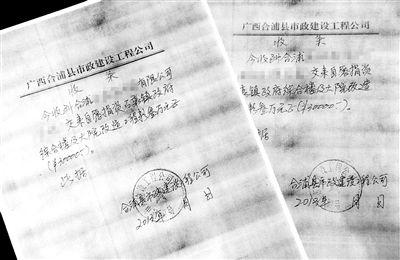 广西合浦县市政建设工程公司
收 条
今收到合浦 有限公司
交来自愿捐资 镇政府
综合楼及大院改造工程款叁万元正
(¥30000—)。
此据
合浦县市政建设工程公司
2013年 月 日
广西合浦县市政建设工程公司
收 条
今收到合浦
交来自愿捐资
镇政府综合楼及大院改造
款叁万元正(¥30000—)
此据
合浦县市政建设工程公司
2013年 月 日